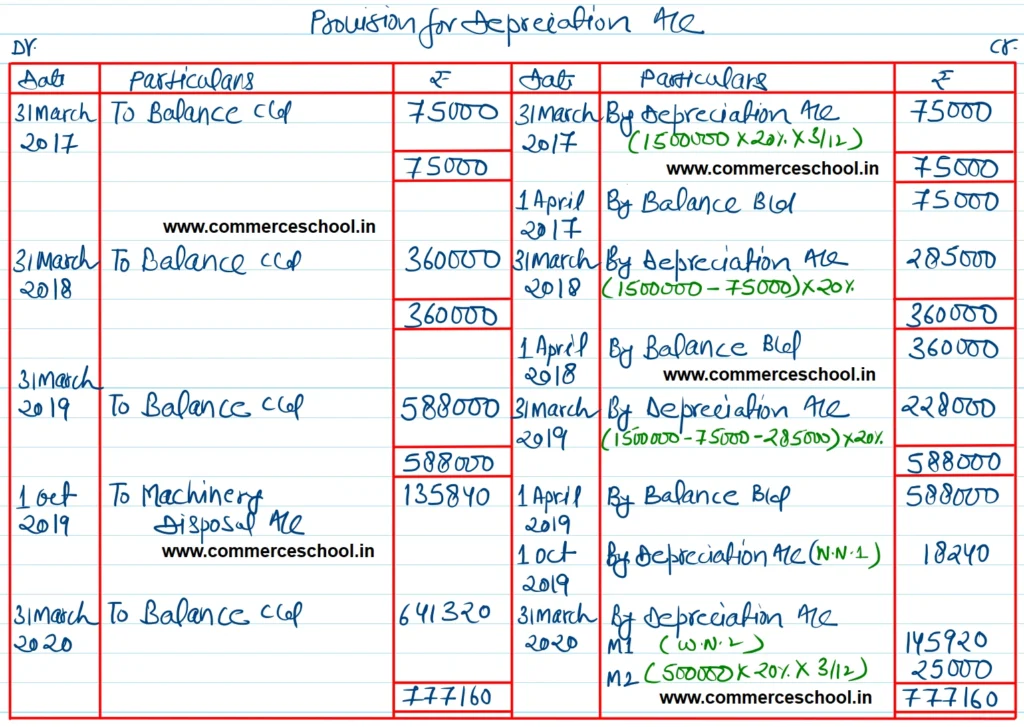 Provision for Depreciation A/c
Dr. Cr.
Date Particulars ₹ Date Particulars ₹
31 March To Balance C/d 75000 31 March By Depreciation A/c 75000
2017 2017 (1500000 X 20% X 3/12)
75000 www.commerceschool.in 75000
1 April By Balance B/d 75000
www.commerceschool.in 2017
31 March To Balance C/d 360000 31 March By Depreciation A/c 285000
2018 2018 (1500000 - 75000) X 20%
360000 360000
1 April By Balance B/d 360000
31 March 2018 www.commerceschool.in
2019 To Balance C/d 588000 31 March By Depreciation A/c 228000
2019 (1500000 - 75000 - 285000) X 20%
588000 588000
1 Oct To Machinery 135840 1 April By Balance B/d 588000
2019 Disposal A/c 2019
www.commerceschool.in 1 Oct By Depreciation A/c (W.N.1) 18240
2019
31 March To Balance C/d 641320 31 March By Depreciation A/c
2020 2020 M1 (W.N.2) 145920
M2 (500000 X 20% X 3/12) 25000
777160 www.commerceschool.in 777160